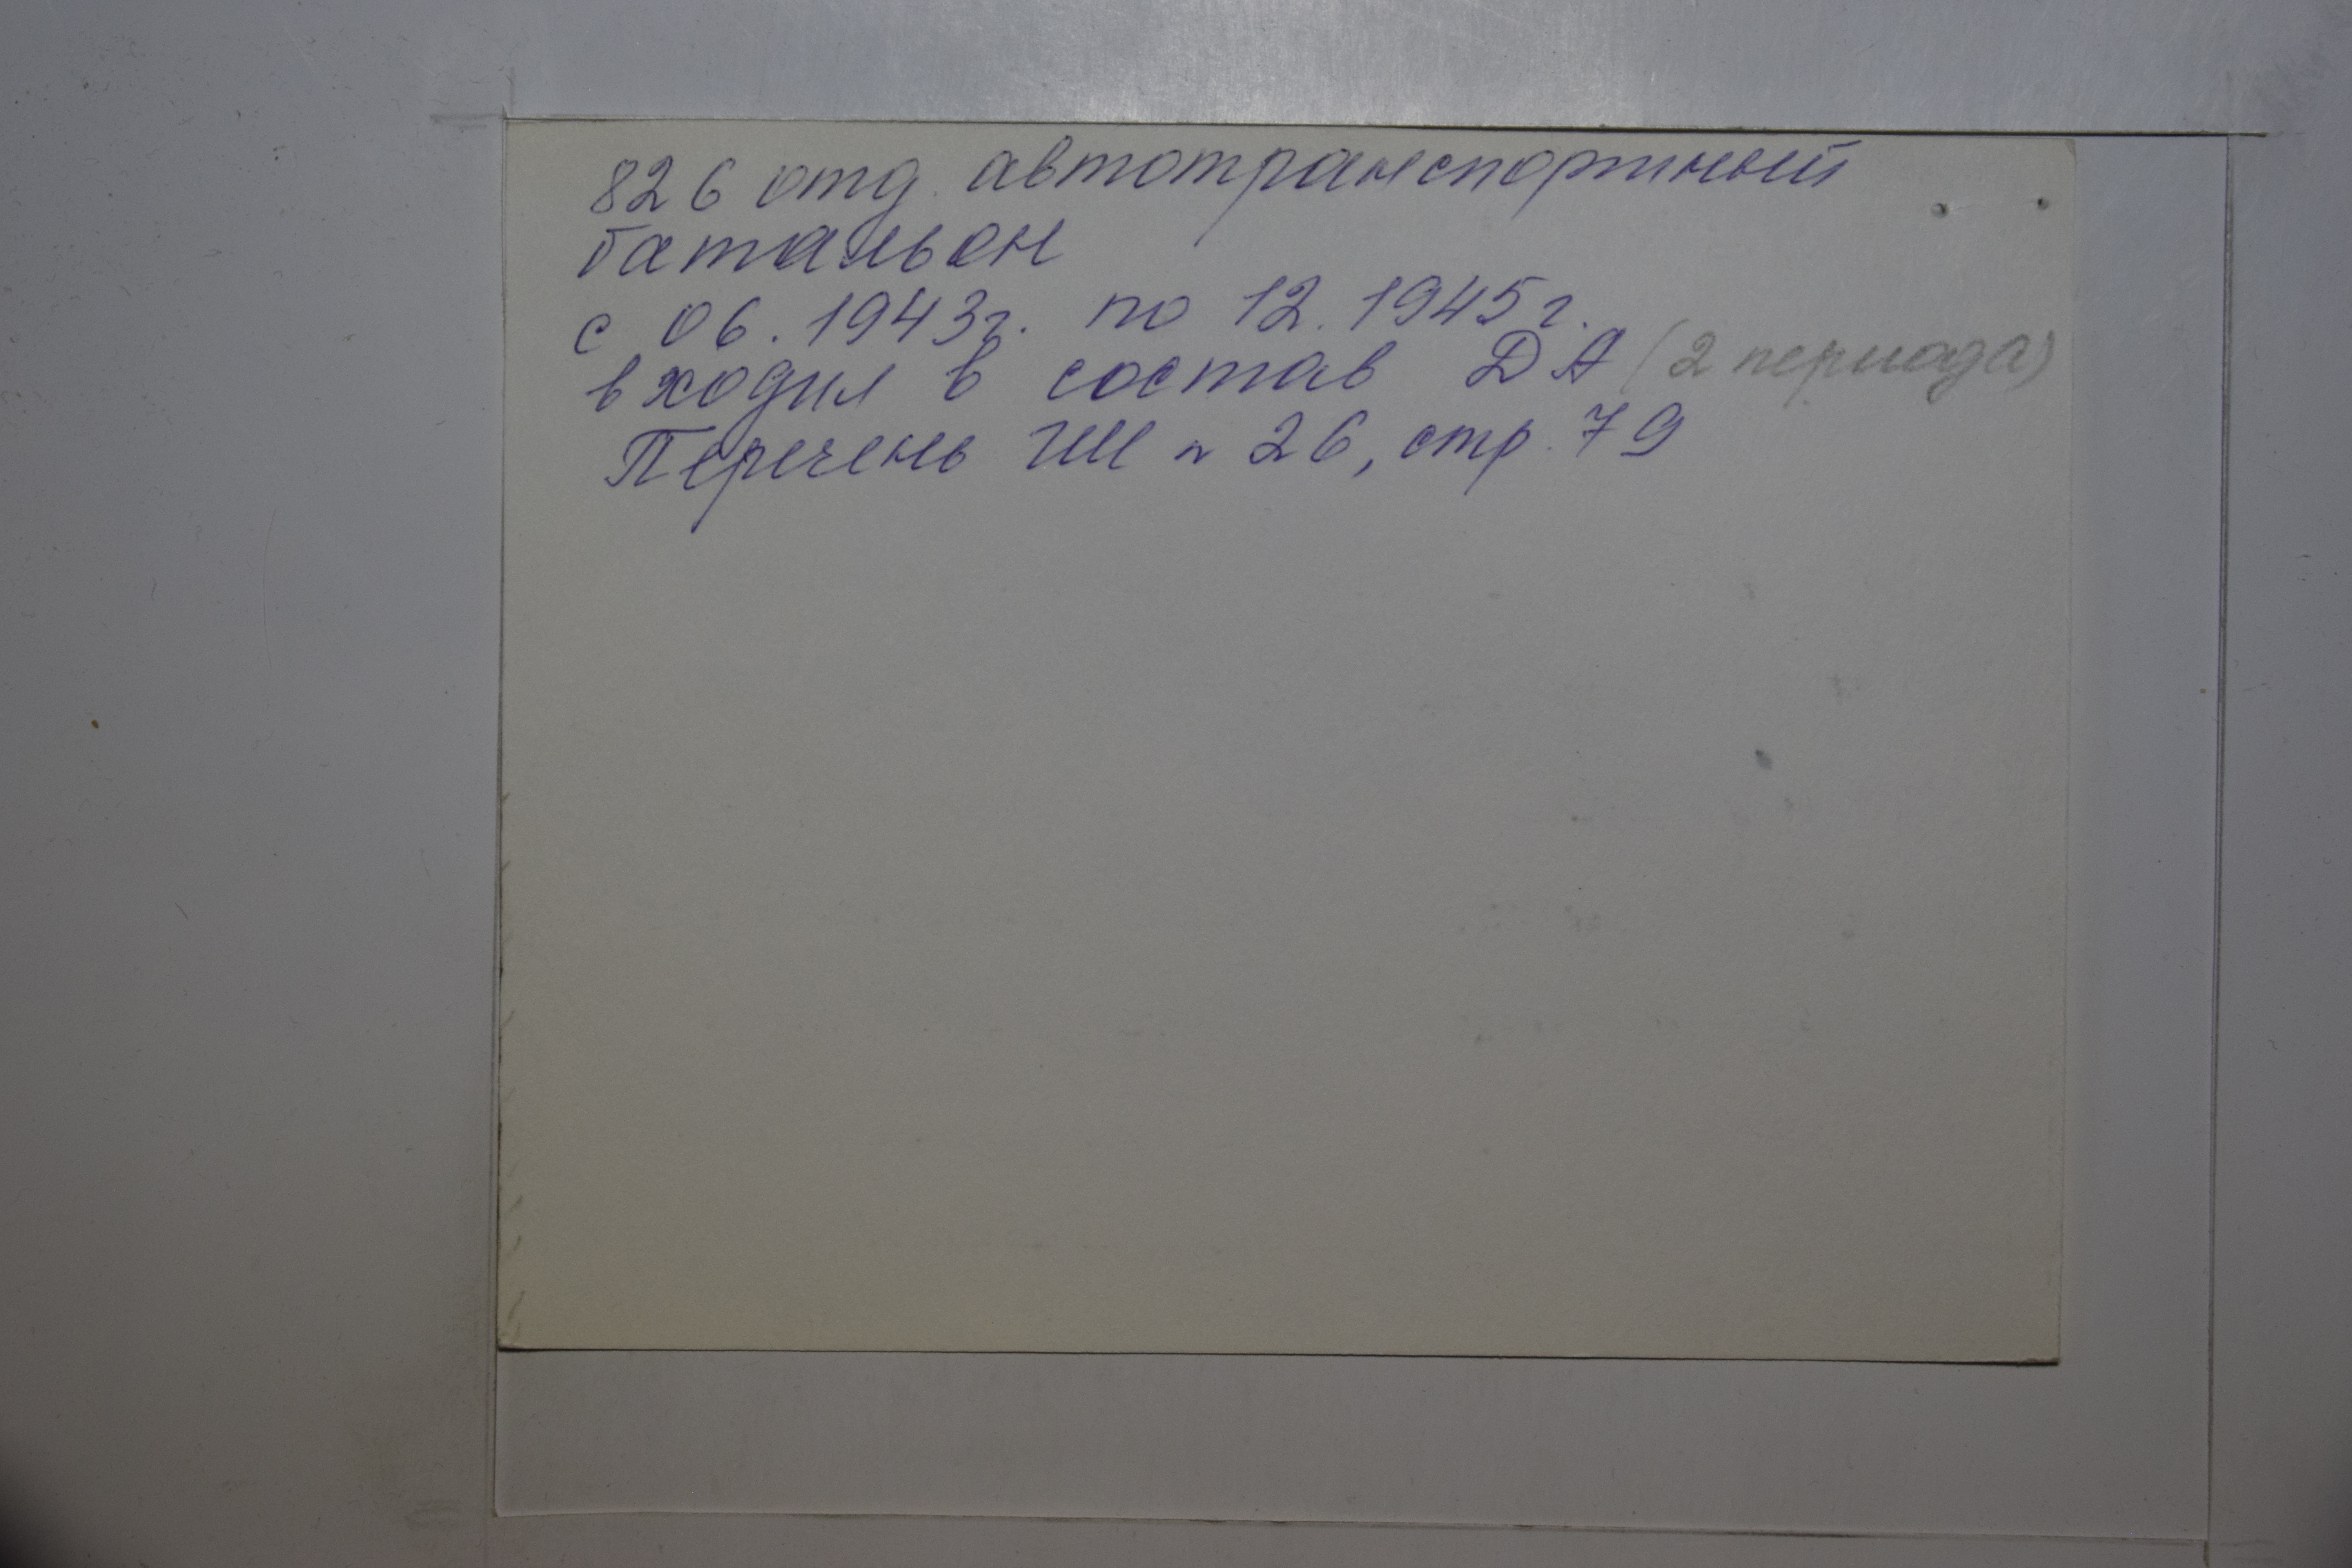 826 отд. автотранспортный
батальон
с 06.1943г. по 12.1945г.
входил в состав ДА (2 периода)
Перечень ГШ № 26, стр. 79